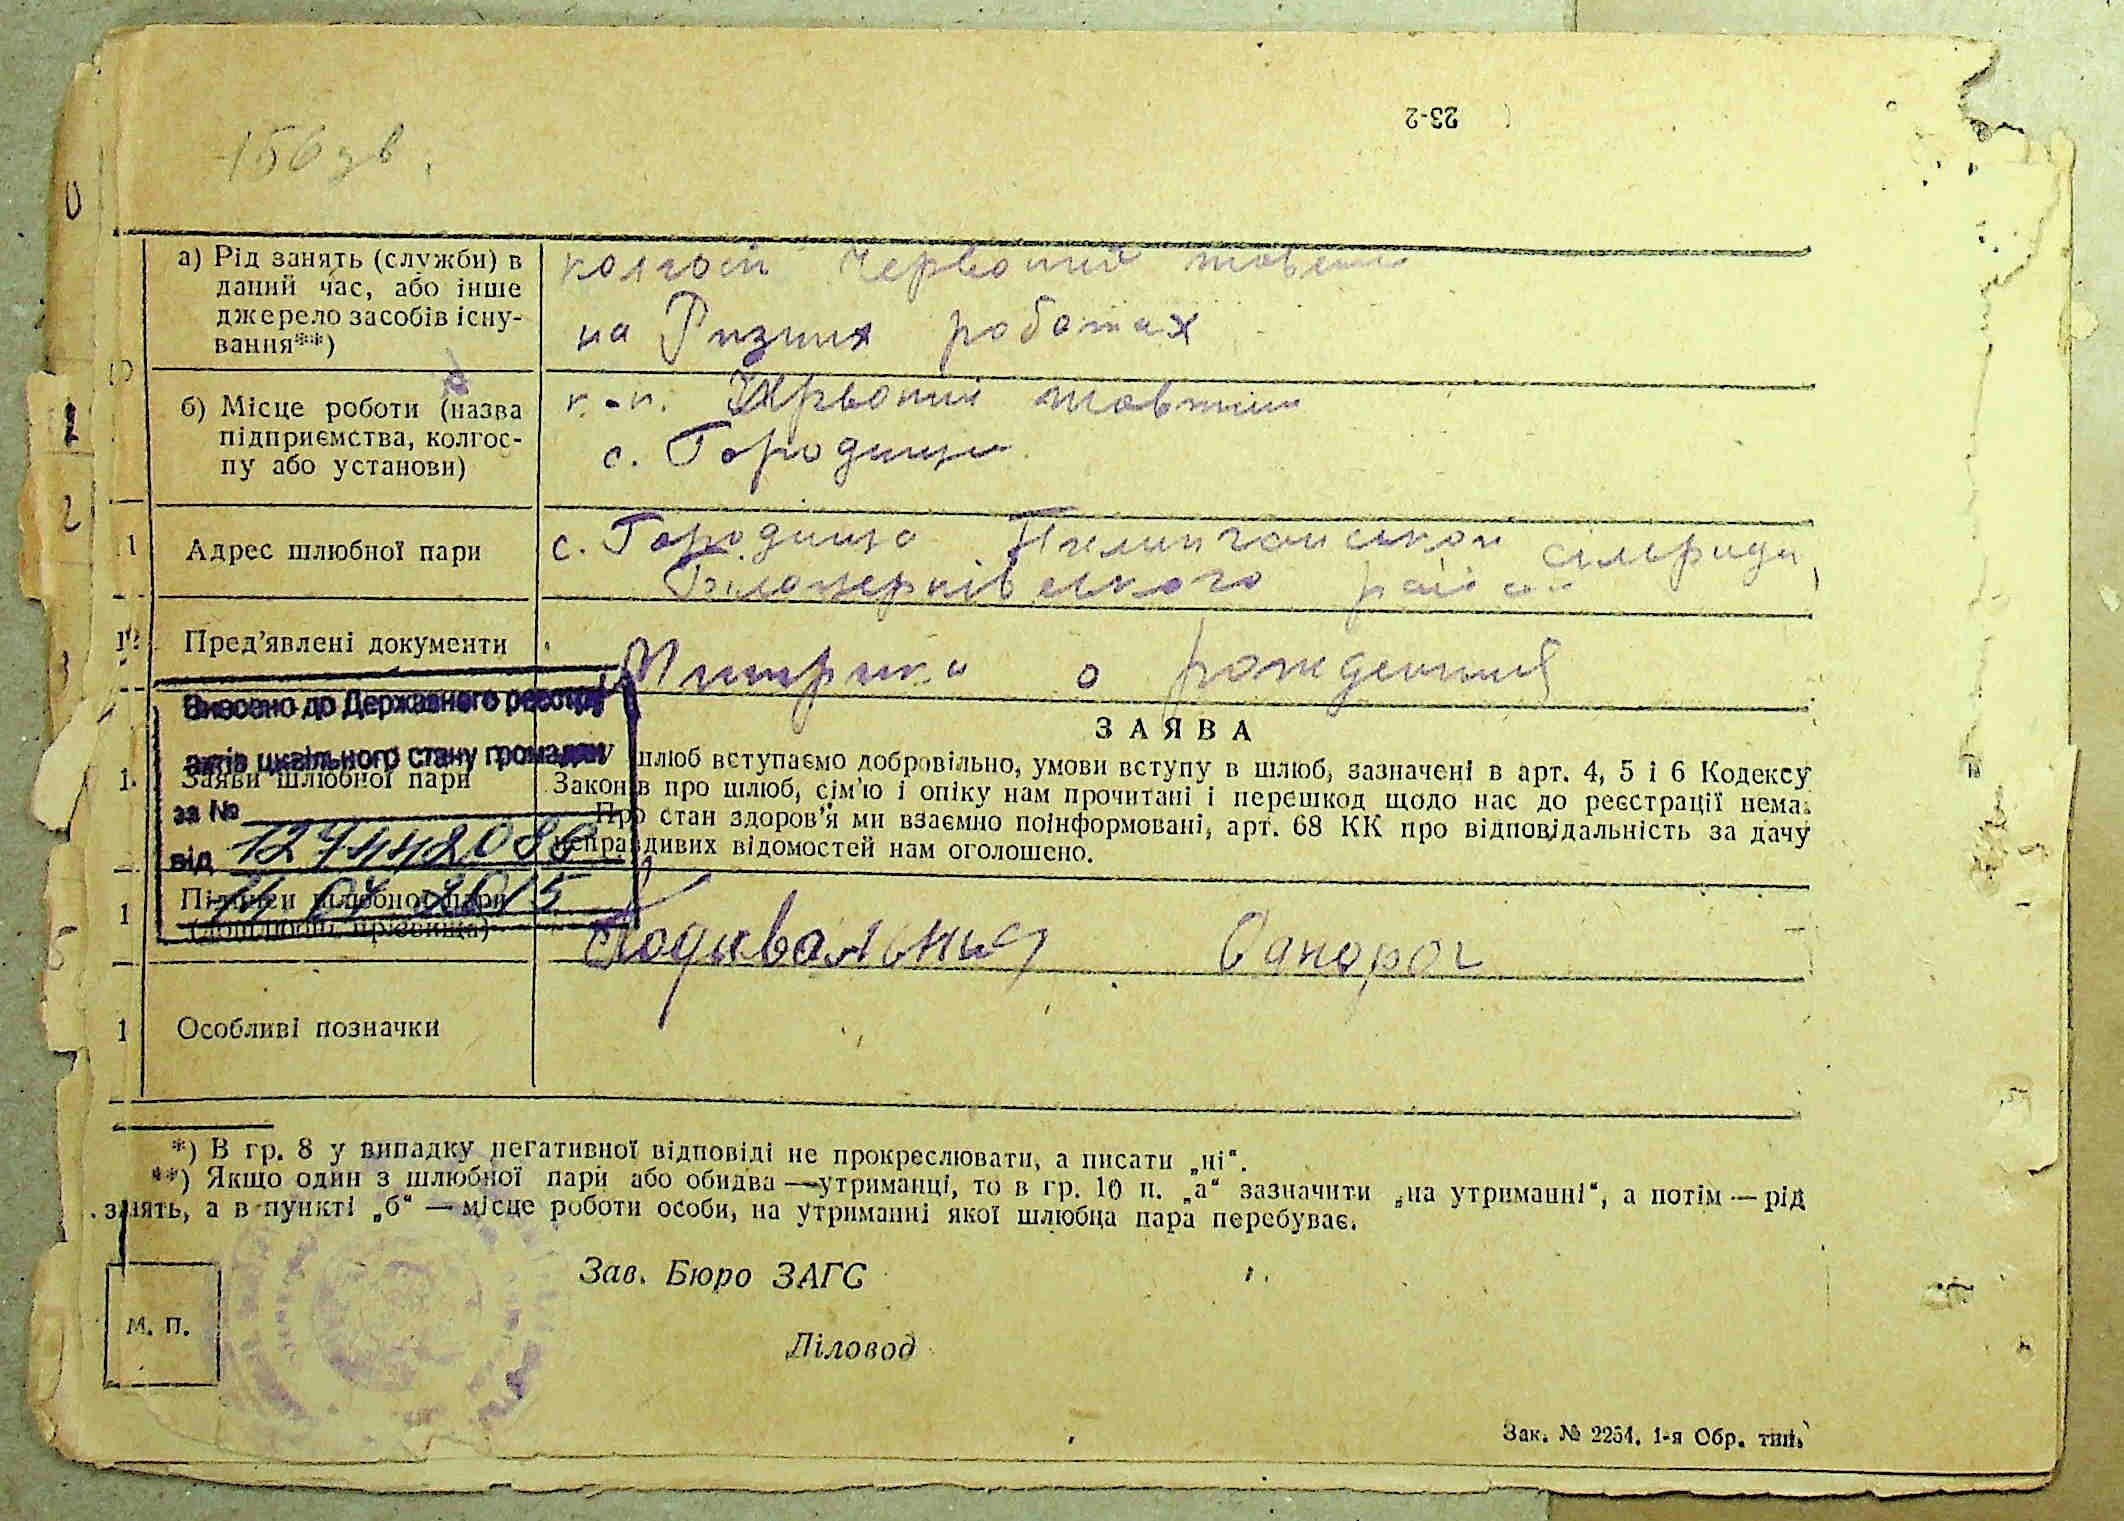 23-2
156 зв.
а) Рід занять (служби) в
даний час, або інше
джерело засобів існу-
вання**)
колгосп Червоний жовтень
на Ризних роботах
б) Місце роботи (назва
підприємства, колгос-
пу або установи)
к-п. Червоний жовтень
с. Городище
Адрес шлюбної пари
с. Городище Пилипчанської сільради
Білоцерківського району
Пред'явлені документи
Митрика о рождения
Внесено до Державного реєстру
актів цивільного стану громадян
за №
127442086
від
ЗАЯВА
Заяви шлюбної пари
У шлюб вступаємо добровільно, умови вступу в шлюб, зазначені в арт. 4, 5 і 6 Кодексу
Законів про шлюб, сім'ю і опіку нам прочитані і перешкод щодо нас до реєстрації нема.
Про стан здоров'я ми взаємно поінформовані, арт. 68 КК про відповідальність за дачу
неправдивих відомостей нам оголошено.
Підписи шлюбної пари
(дошлюбні прізвища)
Подивальния Однорог
1 Особливі позначки
*) В гр. 8 у випадку негативної відповіді не прокреслювати, а писати „ні“.
**) Якщо один з шлюбної пари або обидва — утриманці, то в гр. 10 п. „а“ зазначити „на утриманні“, а потім — рід
занять, а в пункті „б“ — місце роботи особи, на утриманні якої шлюбна пара перебуває.
Зав. Бюро ЗАГС
М. П.
Діловод
Зак. № 2254. 1-я Обр. тип.